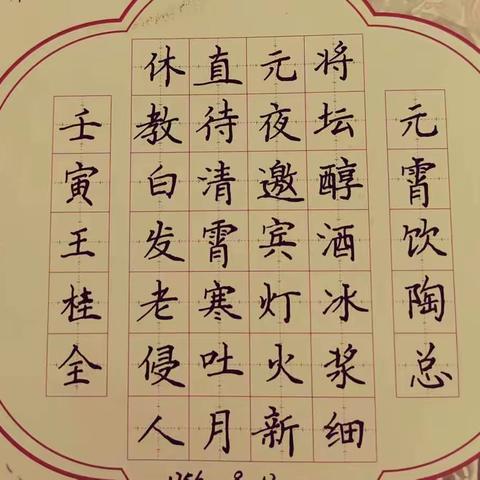 元霄饮陶总
将坛醇酒冰浆细
元夜邀宾灯火新
直待清霄寒吐月
休教白发老侵人
壬寅王桂全